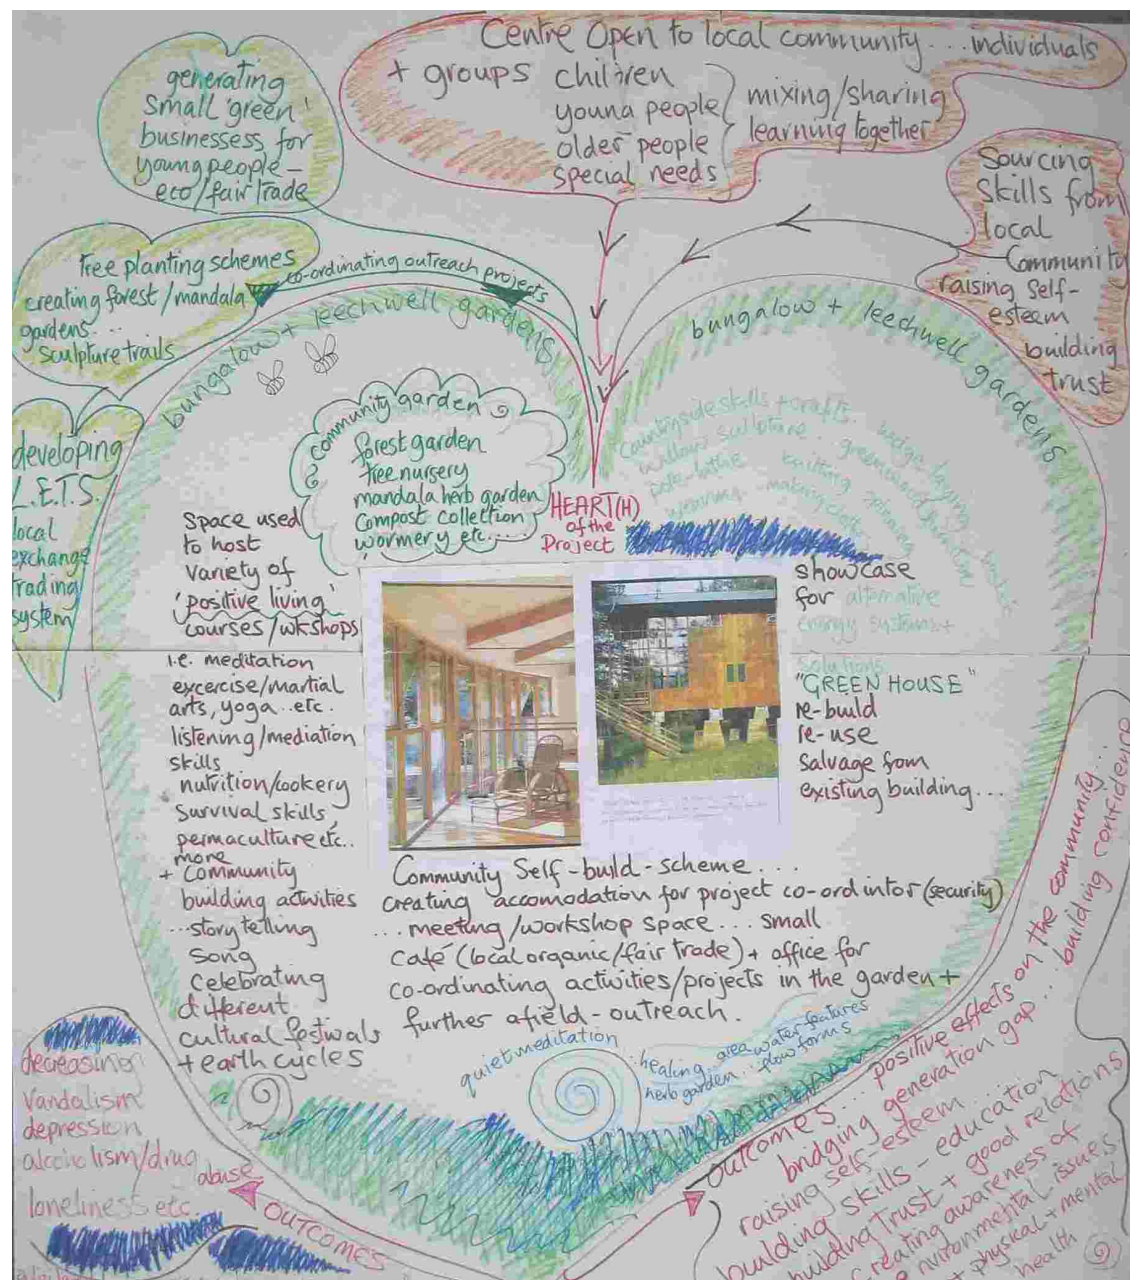 Centre Open to local community... individuals
+ groups children
young people
older people
special needs
mixing/sharing
learning together
generating
small 'green'
businessess for
young people –
eco/fair trade
Sourcing
skills from
local
Community
raising self-
esteem
building
trust
Tree planting schemes
creating forest/mandala
gardens...
sculpture trails
co-ordinating outreach projects
bungalow + leechwell gardens
bungalow + leechwell gardens
developing
L.E.T.S.
local
exchange
trading
system
community garden
forest garden
tree nursery
mandala herb garden
compost collection
wormery etc...
HEART(H)
of the
Project
countryside skills + crafts hedge laying
willow sculpture
pole-lathe
weaving
Space used
to host
variety of
'positive living'
courses/wkshops
i.e. meditation
excercise/martial
arts, yoga..etc.
listening/mediation
skills
nutrition/cookery
survival skills,
permaculture etc..
more
+ community
building activities
...storytelling
song
celebrating
different
cultural festivals
+ earth cycles
showcase
for alternative
energy systems +
solutions
"GREEN HOUSE"
re-build
re-use
salvage from
existing building...
Community Self-build-scheme...
creating accomodation for project co-ordintor (security)
...meeting/workshop space... small
café (local organic/fair trade) + office for
co-ordinating activities/projects in the garden +
further afield-outreach.
quiet meditation
healing
herb garden..
area water features
flow forms
decreasing
vandalism
depression
alcoholism/drug
abuse
loneliness etc.
OUTCOMES
OUTCOMES... positive effects on the community...
bridging generation gap... building confidence
raising self-esteem...
building skills – education
building trust + good relations
creating awareness of
environmental issues
+ physical + mental
health